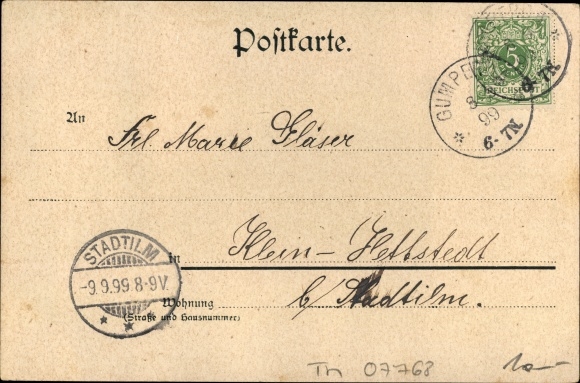 Postkarte.
5
REICHSPOST
8
99
6-7N.
6-7N.
An
Frl. Marie Gläser
STADTILM
-9.9.99 8-9V.
in
Klein-Hettstedt
Wohnung
(Straße und Hausnummer)
b/ Stadtilm.
Th 07768